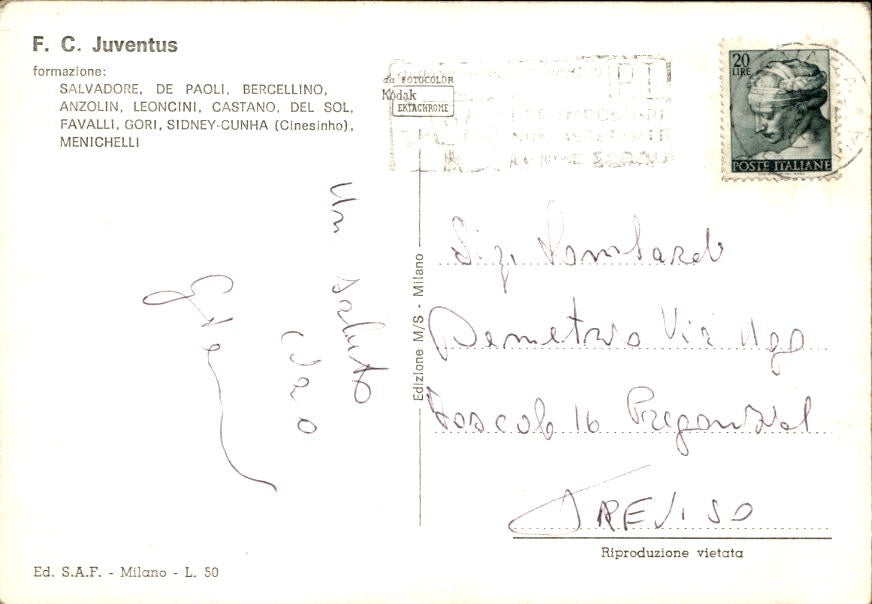 F. C. Juventus
formazione:
SALVADORE, DE PAOLI, BERCELLINO,
ANZOLIN, LEONCINI, CASTANO, DEL SOL,
FAVALLI, GORI, SIDNEY-CUNHA (Cinesinho),
MENICHELLI
da FOTOCOLOR
Kodak
EKTACHROME
20
LIRE
POSTE ITALIANE
Un saluto
Ciao
Edizione M/S - Milano
Sig. Lombardo
Demetrio Via Ugo
Foscolo 16 Preganziol
TREVISO
Riproduzione vietata
Ed. S.A.F. - Milano - L. 50